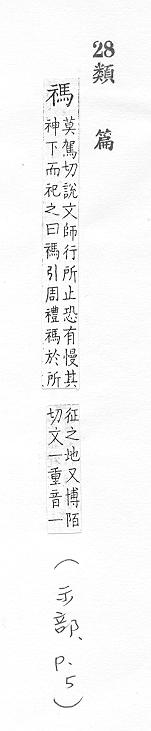 28類篇
禡莫駕切說文師行所止恐有慢其
神下而祀之曰禡引周禮禡於所
征之地又博陌
切文一重音一
(示部、p.5)